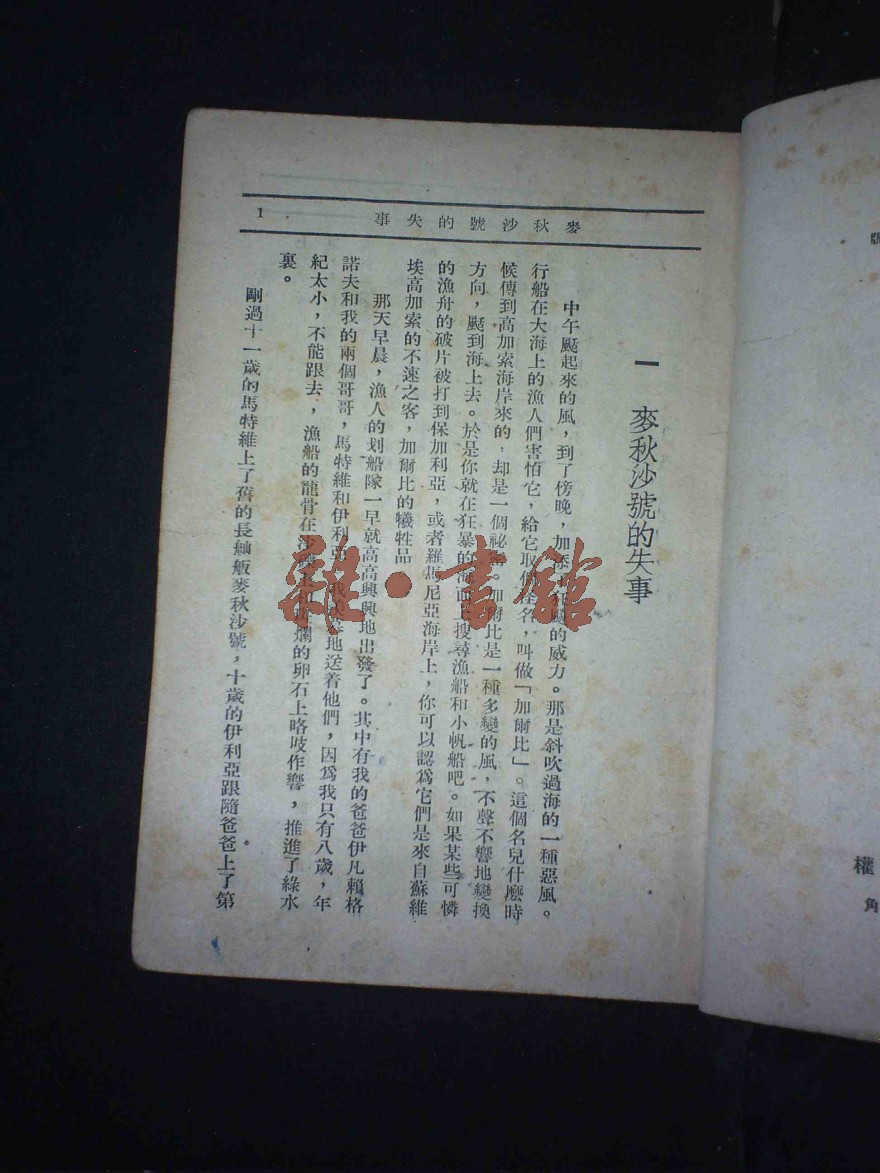 麥秋沙號的失事
1
一 麥秋沙號的失事
中午颳起來的風，到了傍晚，加添 的威力。那是斜吹過海的一種惡風。
行船在大海上的漁人們害怕它，給它取 名，叫做「加爾比」。這個名兒什麼時
候傳到高加索海岸來的，却是一個祕密。加爾比是一種多變的風，不聲不響地變換
方向，颳到海上去。於是你就在狂暴的海面上搜尋漁船和小帆船吧。如果某些可憐
的漁舟的破片被打到保加利亞，或者羅馬尼亞海岸上，你可以認爲它們是來自蘇維
埃高加索的不速之客，加爾比的犧牲品
那天早晨，漁人的划船隊一早就高高興興地出發了。其中有我的爸爸伊凡賴格
諾夫和我的兩個哥哥，馬特維和伊利亞 我羨慕地送着他們，因爲我只有八歲，年
紀太小，不能跟去，漁船的龍骨在沙 和 爛的卵石上咯吱作響，推進了綠水
裏。
剛過十一歲的馬特維上了舊的長舢舨麥秋沙號，十歲的伊利亞跟隨爸爸上了第
版
權
角
雜·書館